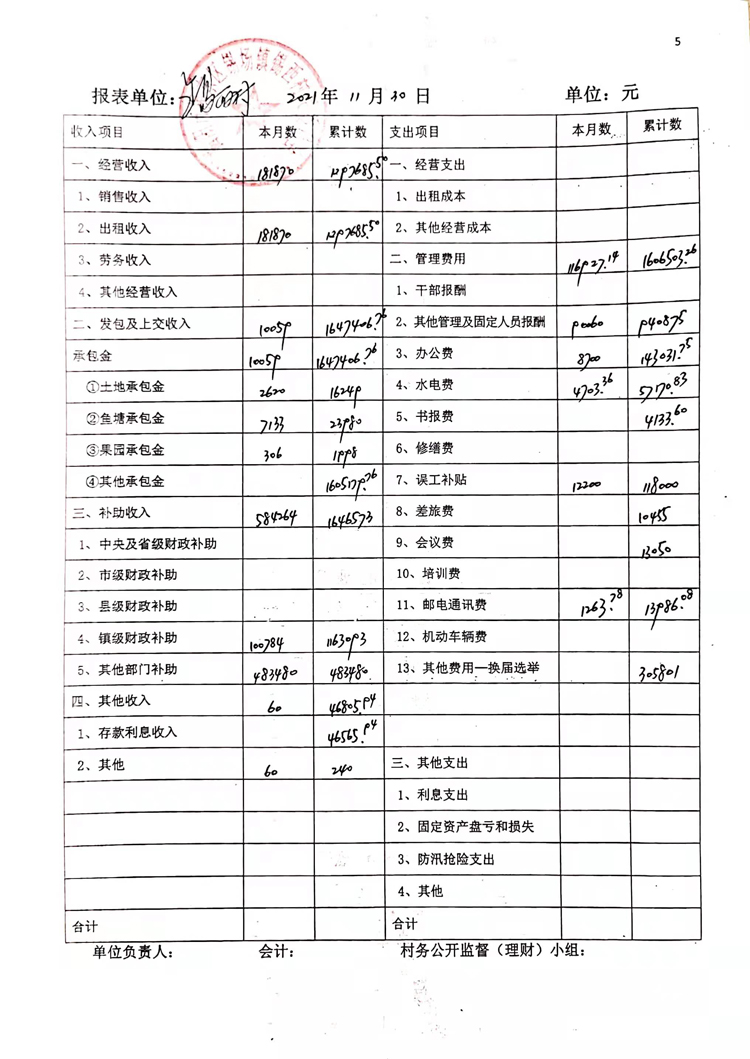 5
报表单位: 2021年 11月 30日 单位: 元
收入项目 本月数 累计数 支出项目 本月数 累计数
一、经营收入 181870 1297685.50 一、经营支出
1、销售收入 1、出租成本
2、出租收入 181870 1297685.50 2、其他经营成本
3、劳务收入 二、管理费用 116927.14 1606503.26
4、其他经营收入 1、干部报酬
二、发包及上交收入 10059 1647406.76 2、其他管理及固定人员报酬 90060 940875
承包金 10059 1647406.76 3、办公费 8700 143031.75
①土地承包金 2620 16249 4、水电费 4703.36 57170.83
②鱼塘承包金 7133 23980 5、书报费 4133.60
③果园承包金 306 1998 6、修缮费
④其他承包金 1605179.76 7、误工补贴 12200 118000
三、补助收入 584264 1646573 8、差旅费 10455
1、中央及省级财政补助 9、会议费 13050
2、市级财政补助 10、培训费
3、县级财政补助 11、邮电通讯费 1263.78 13986.08
4、镇级财政补助 100784 1163093 12、机动车辆费
5、其他部门补助 483480 483480 13、其他费用—换届选举 305801
四、其他收入 60 46805.94
1、存款利息收入 46565.94
2、其他 60 240 三、其他支出
1、利息支出
2、固定资产盘亏和损失
3、防汛抢险支出
4、其他
合计 合计
单位负责人: 会计: 村务公开监督(理财)小组: